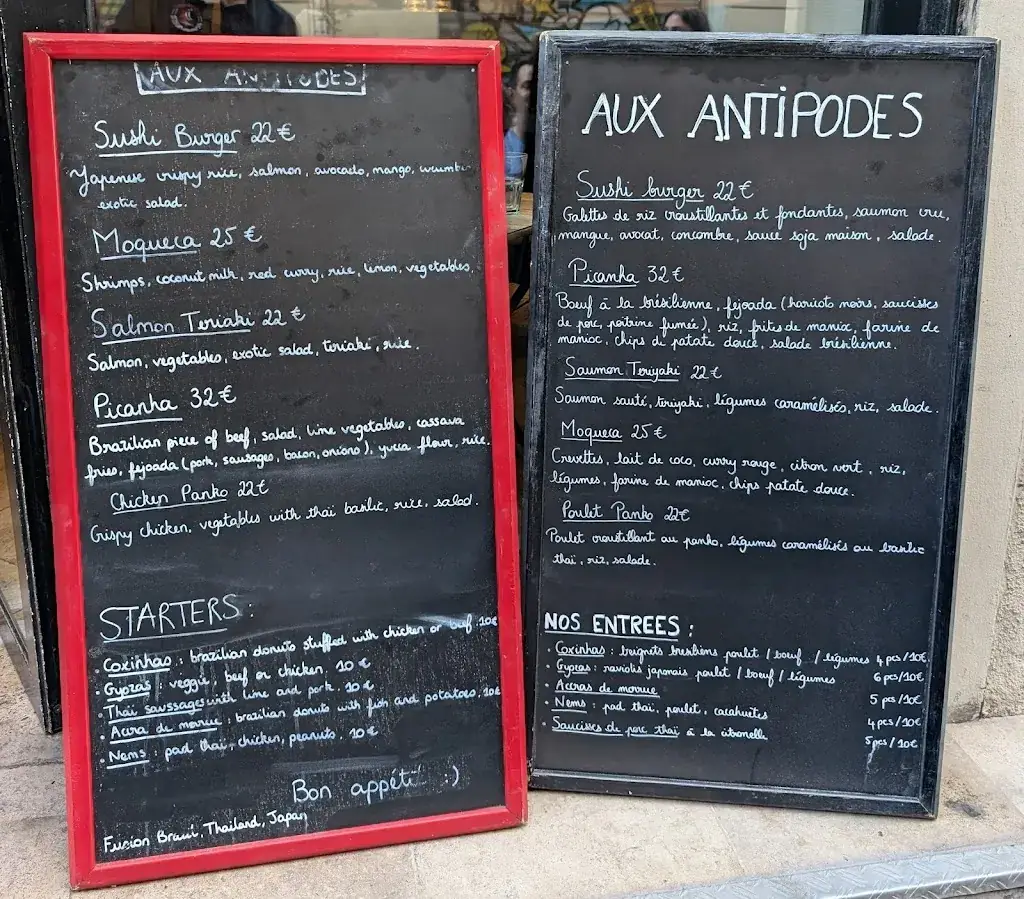 AUX ANTIPODES
Sushi Burger 22 €
Japenese crispy rice, salmon, avocado, mango, cucumb
exotic salad.
Moqueca 25 €
Shrimps, coconut milk, red curry, rice, lemon, vegetables.
Salmon Teriaki 22 €
Salmon, vegetables, exotic salad, teriaki, rice.
Picanha 32 €
Brazilian piece of beef, salad, lime vegetables, cassava
fries, fejoada (pork, sausages, bacon, onions), yuca flour, rice.
Chicken Panko 22 €
Crispy chicken, vegetables with thaï basilic, rice, salad.
STARTERS :
• Coxinhas : brazilian donuts stuffed with chicken or beef . 10€
• Gyozas : veggie, beef or chicken. 10 €
• Thaï saussages with lime and pork. 10 €
• Acera de morue : brazilian donuts with fish and potatoes. 10€
• Nems : pad thaï, chicken, peanuts. 10 €
Bon appétit :)
Fusion Brazil, Thailand, Japan
AUX ANTIPODES
Sushi burger 22 €
Galettes de riz croustillantes et fondantes, saumon cru,
mangue, avocat, concombre, sauce soja maison, salade.
Picanha 32 €
Boeuf à la brésilienne, fejoada (haricots noirs, saucisses
de porc, poitrine fumée), riz, frites de manioc, farine de
manioc, chips de patate douce, salade brésilienne.
Saumon Teriyaki 22 €
Saumon sauté, teriyaki, légumes caramélisés, riz, salade.
Moqueca 25 €
Crevettes, lait de coco, curry rouge, citron vert, riz,
légumes, farine de manioc, chips patate douce.
Poulet Panko 22€
Poulet croustillant au panko, légumes caramélisés au basilic
thaï, riz, salade.
NOS ENTREES :
• Coxinhas : beignets bresiliens poulet / boeuf / légumes 4 pcs / 10€.
• Gyozas : raviolis japonais poulet / boeuf / légumes 6 pcs / 10€
• Accras de morue 5 pcs / 10€
• Nems : pad thaï, poulet, cacahuètes 4 pcs / 10€
• Saucisses de porc thaï à la citronelle 5 pcs / 10€